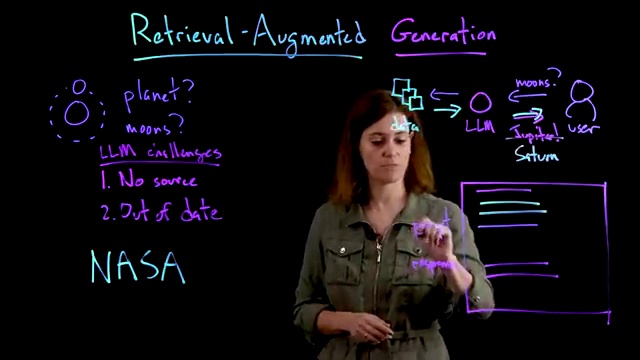 Retrieval-Augmented Generation
planet?
moons?
LLM challenges
1. No source
2. Out of date
NASA
data
LLM
moons?
Jupiter!
user
Saturn